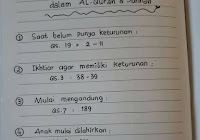 dalam AL-Quran & Sunnah
① Saat belum punya keturunan :
QS. 19 : 2 - 11
② Ikhtiar agar memiliki keturunan :
QS. 3 : 38 - 39
③ Mulai mengandung :
QS. 7 : 189
④ Anak mulai dilahirkan :